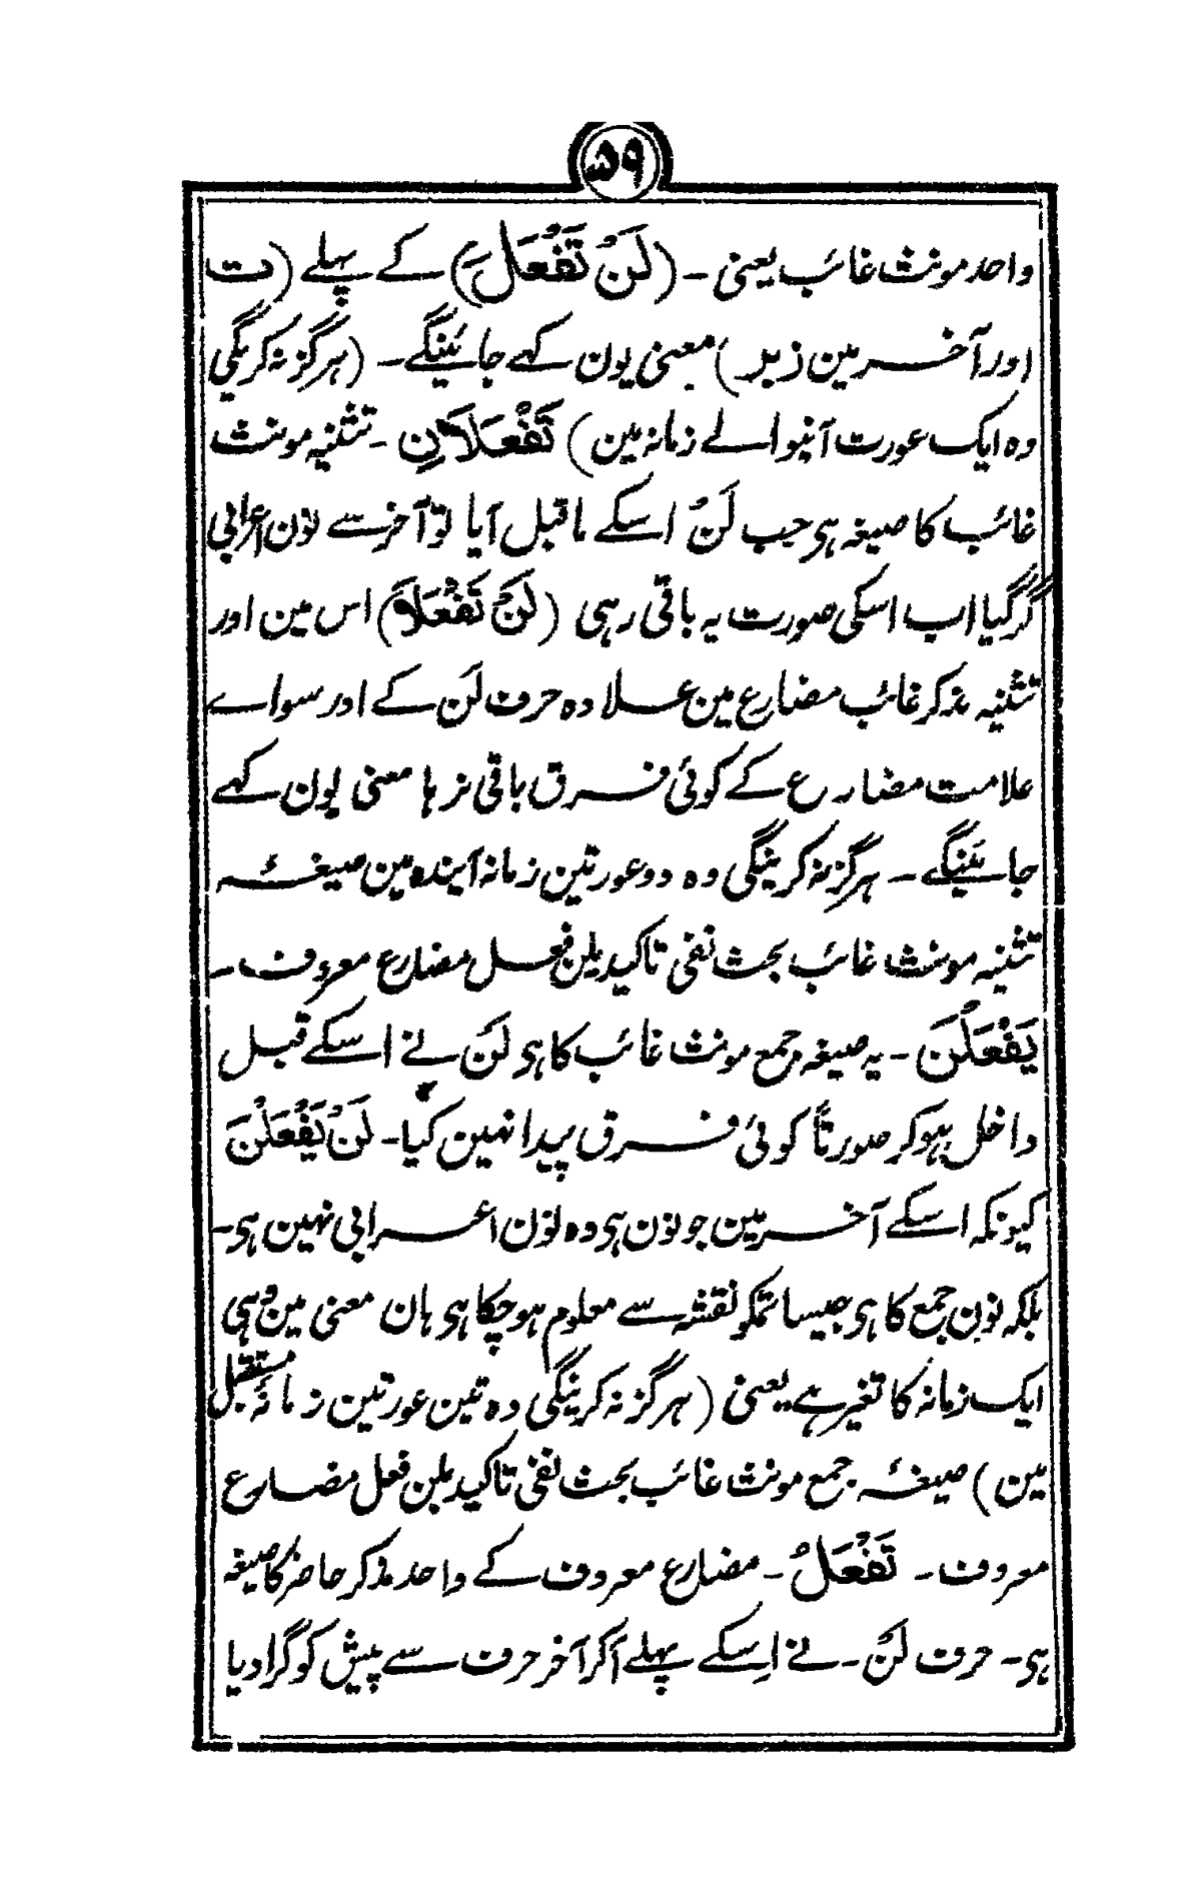 ۵۹
واحد مونث غائب یعنی - (لَنْ تَفْعَلَ) کے پہلے (ت
اور آخر مین زبر) معنی یون کہے جائینگے - (ہرگز نہ کریگی
وہ ایک عورت آنیوالے زمانہ مین) تَفْعَلَانِ - تثنیہ مونث
غائب کا صیغہ ہی جب لَنْ اسکے ماقبل آیا تو آخر سے نون اعرابی
گرگیا اب اسکی صورت یہ باقی رہی (لَنْ تَفْعَلَا) اس مین اور
تثنیہ مذکر غائب مضارع مین علاوہ حرف لَن کے اور سواے
علامت مضارع کے کوئی فرق باقی نرہا معنی یون کہے
جائینگے - ہرگز نہ کرینگی وہ دو عورتین زمانہ آیندہ مین صیغۂ
تثنیہ مونث غائب بحث نفی تاکید بلن فعل مضارع معروف -
يَفْعَلْنَ - یہ صیغہ جمع مونث غائب کا ہی لَن نے اسکے قبل
داخل ہوکر صورتاً کوئی فرق پیدا نہین کیا - لَنْ يَفْعَلْنَ
کیونکہ اسکے آخر مین جو نون ہی وہ نون اعرابی نہین ہی -
بلکہ نون جمع کا ہی جیسا تمکو نقشہ سے معلوم ہوچکا ہی ہان معنی مین وہی
ایک زمانہ کا تغیر ہے یعنی (ہرگز نہ کرینگی وہ تین عورتین زمانۂ مستقبل
مین) صیغۂ جمع مونث غائب بحث نفی تاکید بلن فعل مضارع
معروف - تَفْعَلُ - مضارع معروف کے واحد مذکر حاضر کا صیغہ
ہی - حرف لَنْ - نے اِسکے پہلے آکر آخر حرف سے پیش کو گرا دیا